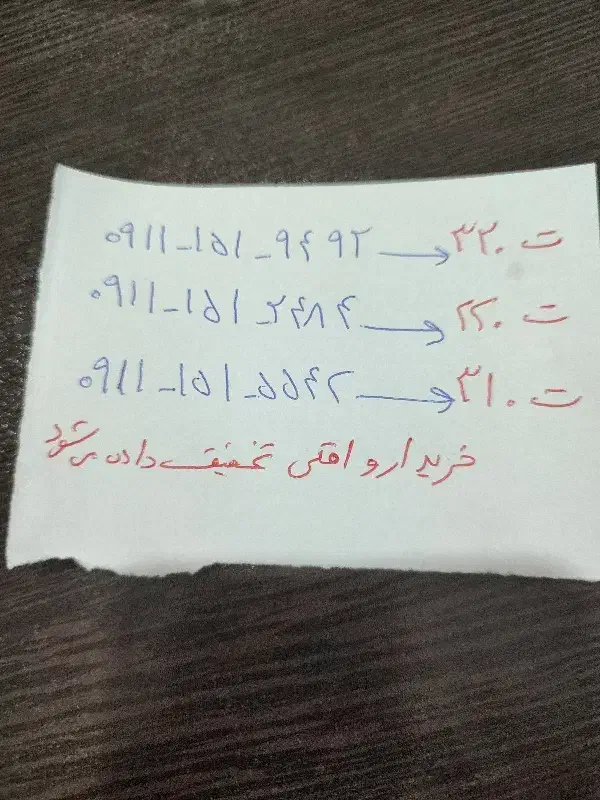 ۰۹۱۱-۱۵۱-۹۴۹۲ → ۳۲۰ ت
۰۹۱۱-۱۵۱-۲۴۸۴ → ۲۲۰ ت
۰۹۱۱-۱۵۱-۵۵۴۲ → ۳۱۰ ت
خریدار واقعی تخفیف داده می‌شود